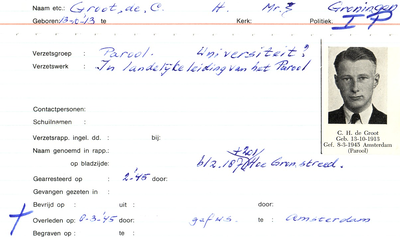 Naam etc.: Groot, de. C. H. Mr. Groningen
Geboren: 13-10-'13 te : Kerk: Politiek: IP
Verzetsgroep : Parool. Universiteit?
Verzetswerk : In landelijke leiding van het Parool
Contactpersonen:
Schuilnamen :
Verzetsrapp. ingel. dd. : bij:
Naam genoemd in rapp.:
op bladzijde: blz. 187
Gearresteerd op : 2-'45 door:
Gevangen gezeten in :
Bevrijd op : uit : door:
Overleden op : 8-3-'45 door: gef. te : Amsterdam
Begraven op : te :
C. H. de Groot
Geb. 13-10-1913
Gef. 8-3-1945 Amsterdam
(Parool)